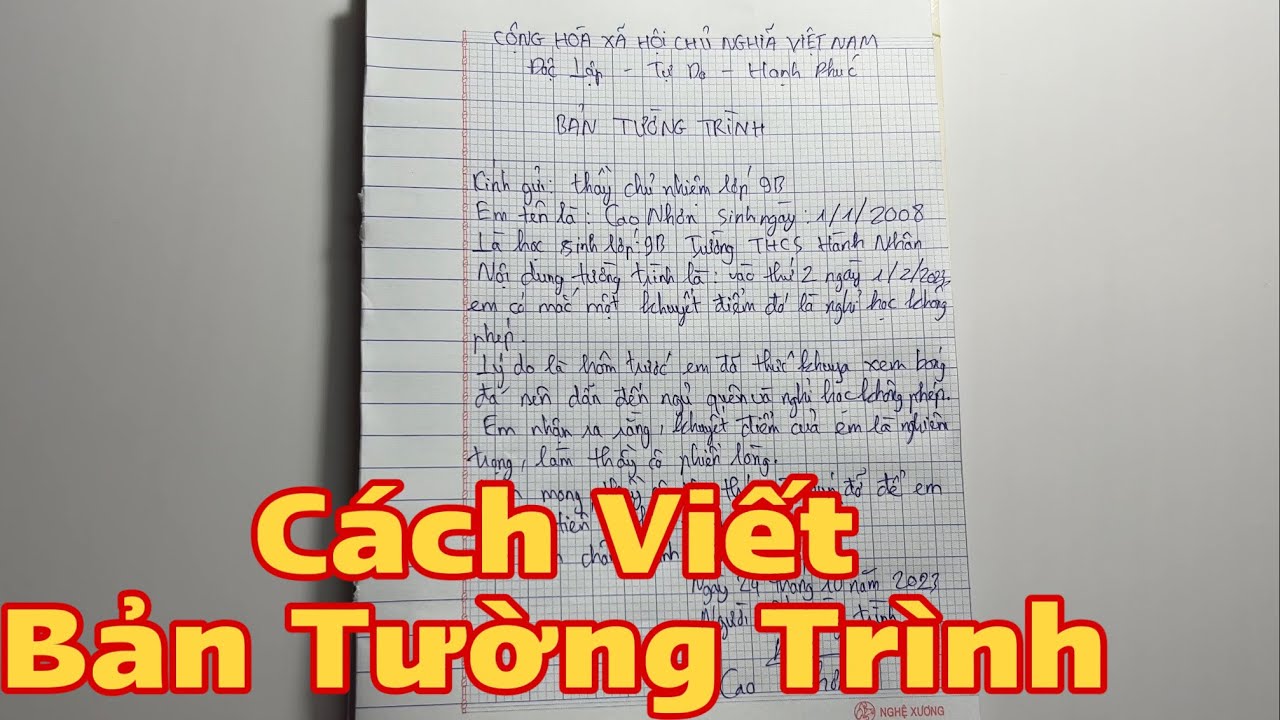 CỘNG HÒA XÃ HỘI CHỦ NGHĨA VIỆT NAM
Độc Lập - Tự Do - Hạnh Phúc
BẢN TƯỜNG TRÌNH
Kính gửi: thầy chủ nhiệm lớp 9B
Em tên là: Cao Nhân sinh ngày: 1/1/2008
Là học sinh lớp: 9B Trường THCS Hành Nhân
Nội dung tường trình là: vào thứ 2 ngày 1/2/2023,
em có mắc một khuyết điểm đó là nghỉ học không
phép.
Lý do là hôm trước em đã thức khuya xem bóng
đá nên dẫn đến ngủ quên và nghỉ học không phép.
Em nhận ra rằng, khuyết điểm của em là nghiêm
trọng, làm thầy cô phiền lòng.
mong đỡ để em
tiến
chân
Ngày 24 tháng 10 năm 2023
Người trình
Cao
Cách Viết
Bản Tường Trình
NGHỆ XƯƠNG